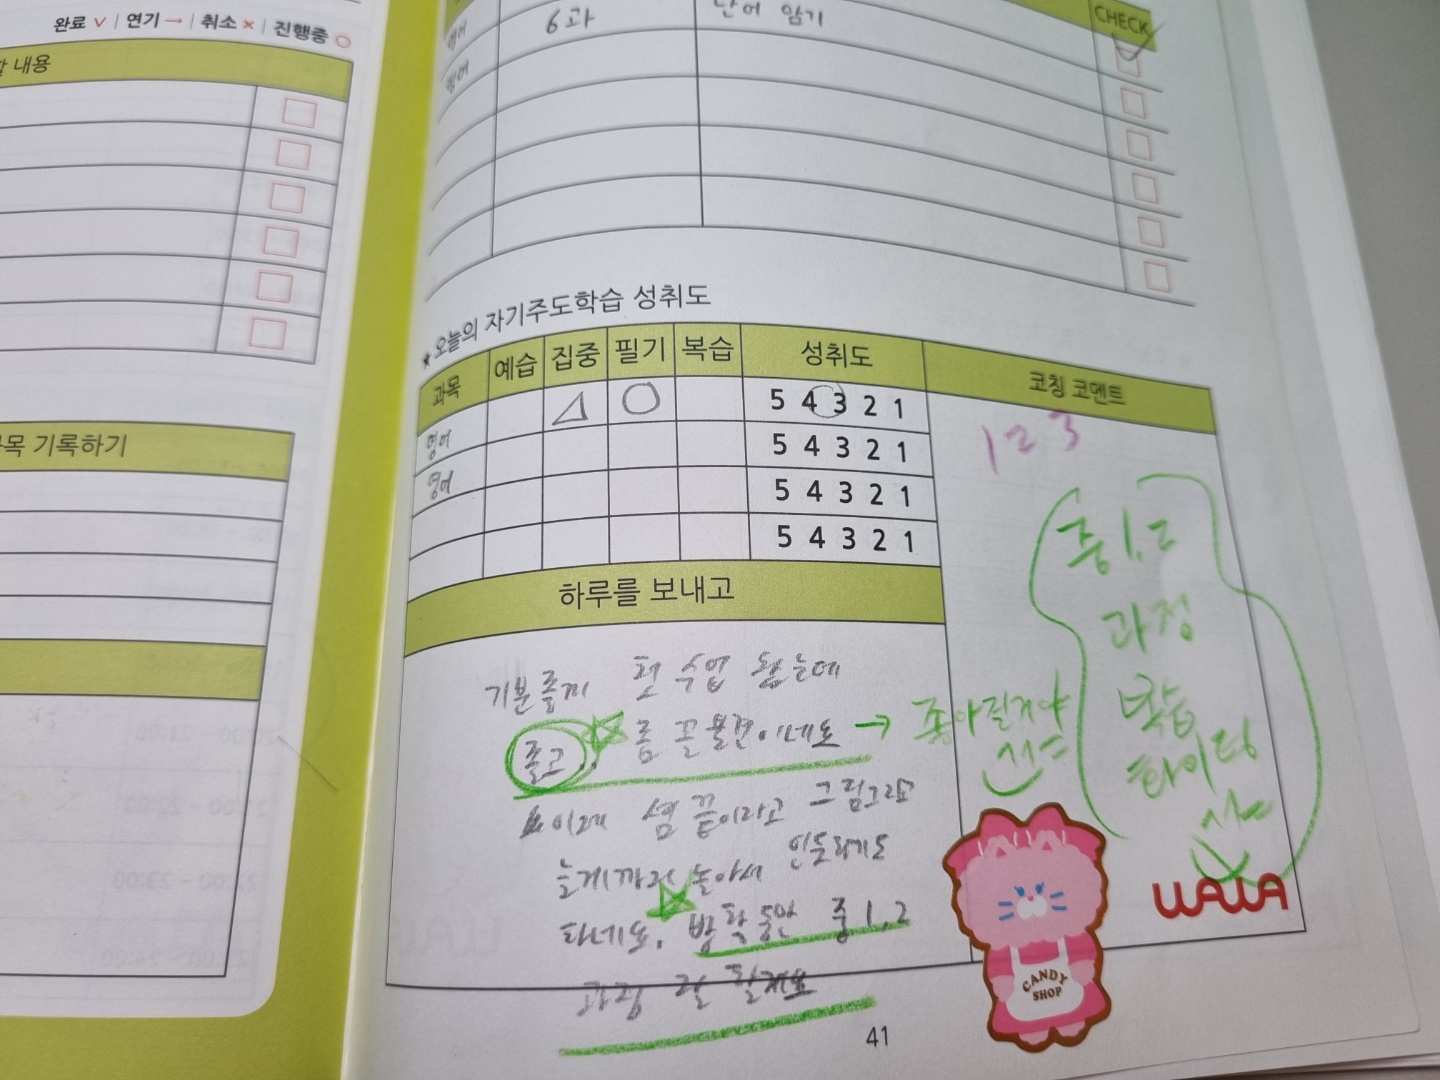 완료 ∨ | 연기 → | 취소 × | 진행중 ○
할 내용
목 기록하기
CHECK
영어 6과 단어 암기
영어
★ 오늘의 자기주도학습 성취도
과목 예습 집중 필기 복습 성취도 코칭 코멘트
영어 △ ○ 5 4 3 2 1
영어 5 4 3 2 1
5 4 3 2 1
5 4 3 2 1
1 2 3
하루를 보내고
기분 좋게 첫 수업 왔는데
졸고..
좋아질거야
이제 셤 끝이라고
늘게까지 놀아서
타네요. 방학동안 중1,2
과정 잘 할게요
중1,2
과정
복습
화이팅
CANDY SHOP
WAWA
41